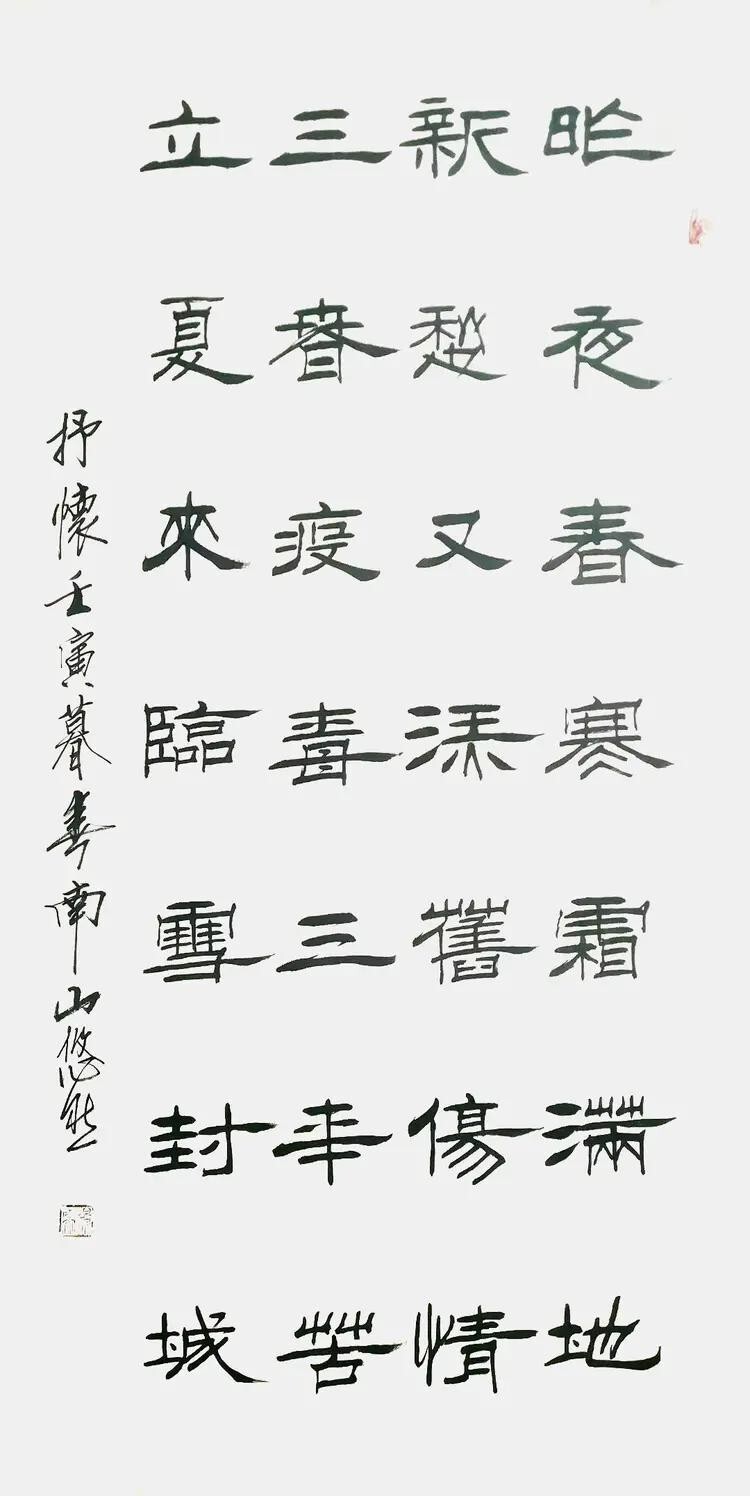 昨夜春寒霜滿地
新愁又添舊傷情
三春疫毒三年苦
立夏來臨雪封城
抒懷壬寅暮春南山悠然